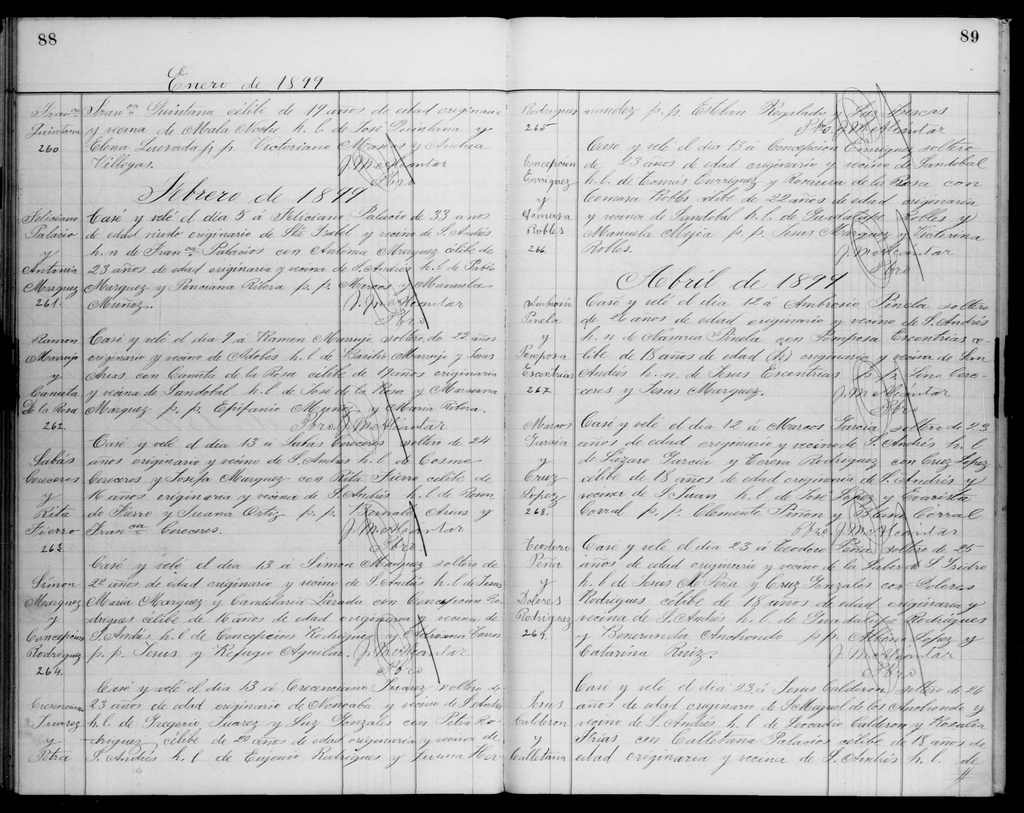 88
Enero de 1899
Fran.co Quintana 260
Fran.co Quintana célibe de 19 años de edad originaria
y vecina de Mala Noche h. l. de José Quintana y
Elena Quesada p. p. Victoriano Macias y Andrea
Villegas. J. M. Alcantar
Pbro
Febrero de 1899
Feliciano Palacio y Antonia Marquez 261.
Casé y velé el dia 5 á Feliciano Palacio de 33 años
de edad viudo originario de Sta Isabel y vecino de S. Andrés
h. n. de Fran.ca Palacios con Antonia Marquez célibe de
23 años de edad originaria y vecina de S. Andrés h. l. de Pablo
Marquez y Ponciana Ribera p. p. Marcos y Manuela
Muñoz. J. M. Alcantar
Pbro.
Ramon Monrujo y Canuta de la Rosa 262.
Casé y velé el dia 9 á Ramon Monrujo soltero de 22 años
originario y vecino de Robles h. l. de Basilio Monrujo y
Arias con Canuta de la Rosa célibe de 19 años originaria
y vecina de Sandobal h. l. de José de la Rosa y Mariana
Marquez p. p. Epifanio Muñoz y Maria Ribera.
Pbro J. M. Alcantar
Sabás Cereceres y Rita Fierro 263
Casé y velé el dia 13 á Sabas Cereceres soltero de 24
años originario y vecino de S. Andrés h. l. de Cosme
Cereceres y Josefa Marquez con Rita Fierro célibe de
16 años originaria y vecina de S. Andrés h. l. de
de Fierro y Susana Ortiz p. p. Bernabé Arias y
Fran.ca Cereceres. J. M. Alcantar
Pbro.
Simon Marquez y Concepcion Rodriguez 264.
Casé y velé el dia 13 á Simon Marquez soltero de
22 años de edad originario y vecino de S. Andrés h. l. de Jesus
Maria Marquez y Candelaria Parada con Concepcion Ro-
driguez célibe de 16 años de edad originaria y vecina de
S. Andrés h. l. de Concepcion Rodriguez y
p. p. Jesus y Refugio Aguilar. J. M. Alcantar
Pbro
Crescenciano Juarez y Petra
Casé y velé el dia 13 á Crescenciano Juarez soltero de
23 años de edad originario de y vecino de S. Andrés
h. l. de Gregorio Juarez y Luz Gonzales con Petra Ro-
driguez célibe de 20 años de edad originaria y vecina de
S. Andrés h. l. de Eugenio Rodriguez y Her-
89
Rodriguez 265
nandez p. p. Esteban Regalado y Luz
Pbro. J. M. Alcantar
Concepcion Enriquez y Tomasa Robles 266
Casé y velé el dia 13 á Concepcion Enriquez soltero
de 23 años de edad originario y vecino de Sandobal
h. l. de Tomás Enrriquez y de la Rosa con
Tomasa Robles célibe de 22 años de edad originaria
y vecina de Sandobal h. l. de Guadalupe Robles y
Manuela Mejia p. p. Jesus Marquez y Victorina
Robles. J. M. Alcantar
Pbro
Abril de 1899
Ambrosio Pinela y Pomposa Escontrias 267
Casé y velé el dia 12 á Ambrosio Pinela soltero
de 26 años de edad originario y vecino de S. Andrés
h. n. de Nazaria Pinela con Pomposa Escontrias cé-
libe de 18 años de edad originaria y vecina de San
Andrés h. n. de Jesus Escontrias p. p. Lino Cere-
ceres y Jesus Marquez. J. M. Alcántar
Pbro
Marcos Garcia y Cruz Lopez 268.
Casé y velé el dia 12 á Marcos Garcia soltero de 23
años de edad originario y vecino de S. Andrés h. l.
de Lázaro Garcia y Teresa Rodriguez con Cruz Lopez
célibe de 18 años de edad originaria de S. Andrés y
vecina de S. Juan h. l. de José Lopez y Evarista
Corral p. p. Clemente Piñon y Corral
Pbro. J. M. Alcantar
Teodoro Peña y Dolores Rodriguez 269.
Casé y velé el dia 23 á Teodoro Peña soltero de 25
años de edad originario y vecino de la Labor de S. Isidro
h. l. de Jesus M. Peña y Cruz Gonzales con Dolores
Rodrigues célibe de 18 años de edad originaria y
vecina de S. Andrés h. l. de Guadalupe Rodrigues
y Beneranda Anchondo p. p. Albino Lopez y
Catarina Ruiz. J. M. Alcantar
Pbro
Jesus Calderon y Calletana
Casé y velé el dia 23 á Jesus Calderon soltero de 26
años de edad originario de S. Miguel de los Anchondo y
vecino de S. Andrés h. l. de Locardio Calderon y Rosalia
Frias con Calletana Palacios célibe de 18 años de
edad originaria y vecina de S. Andrés h. l. de